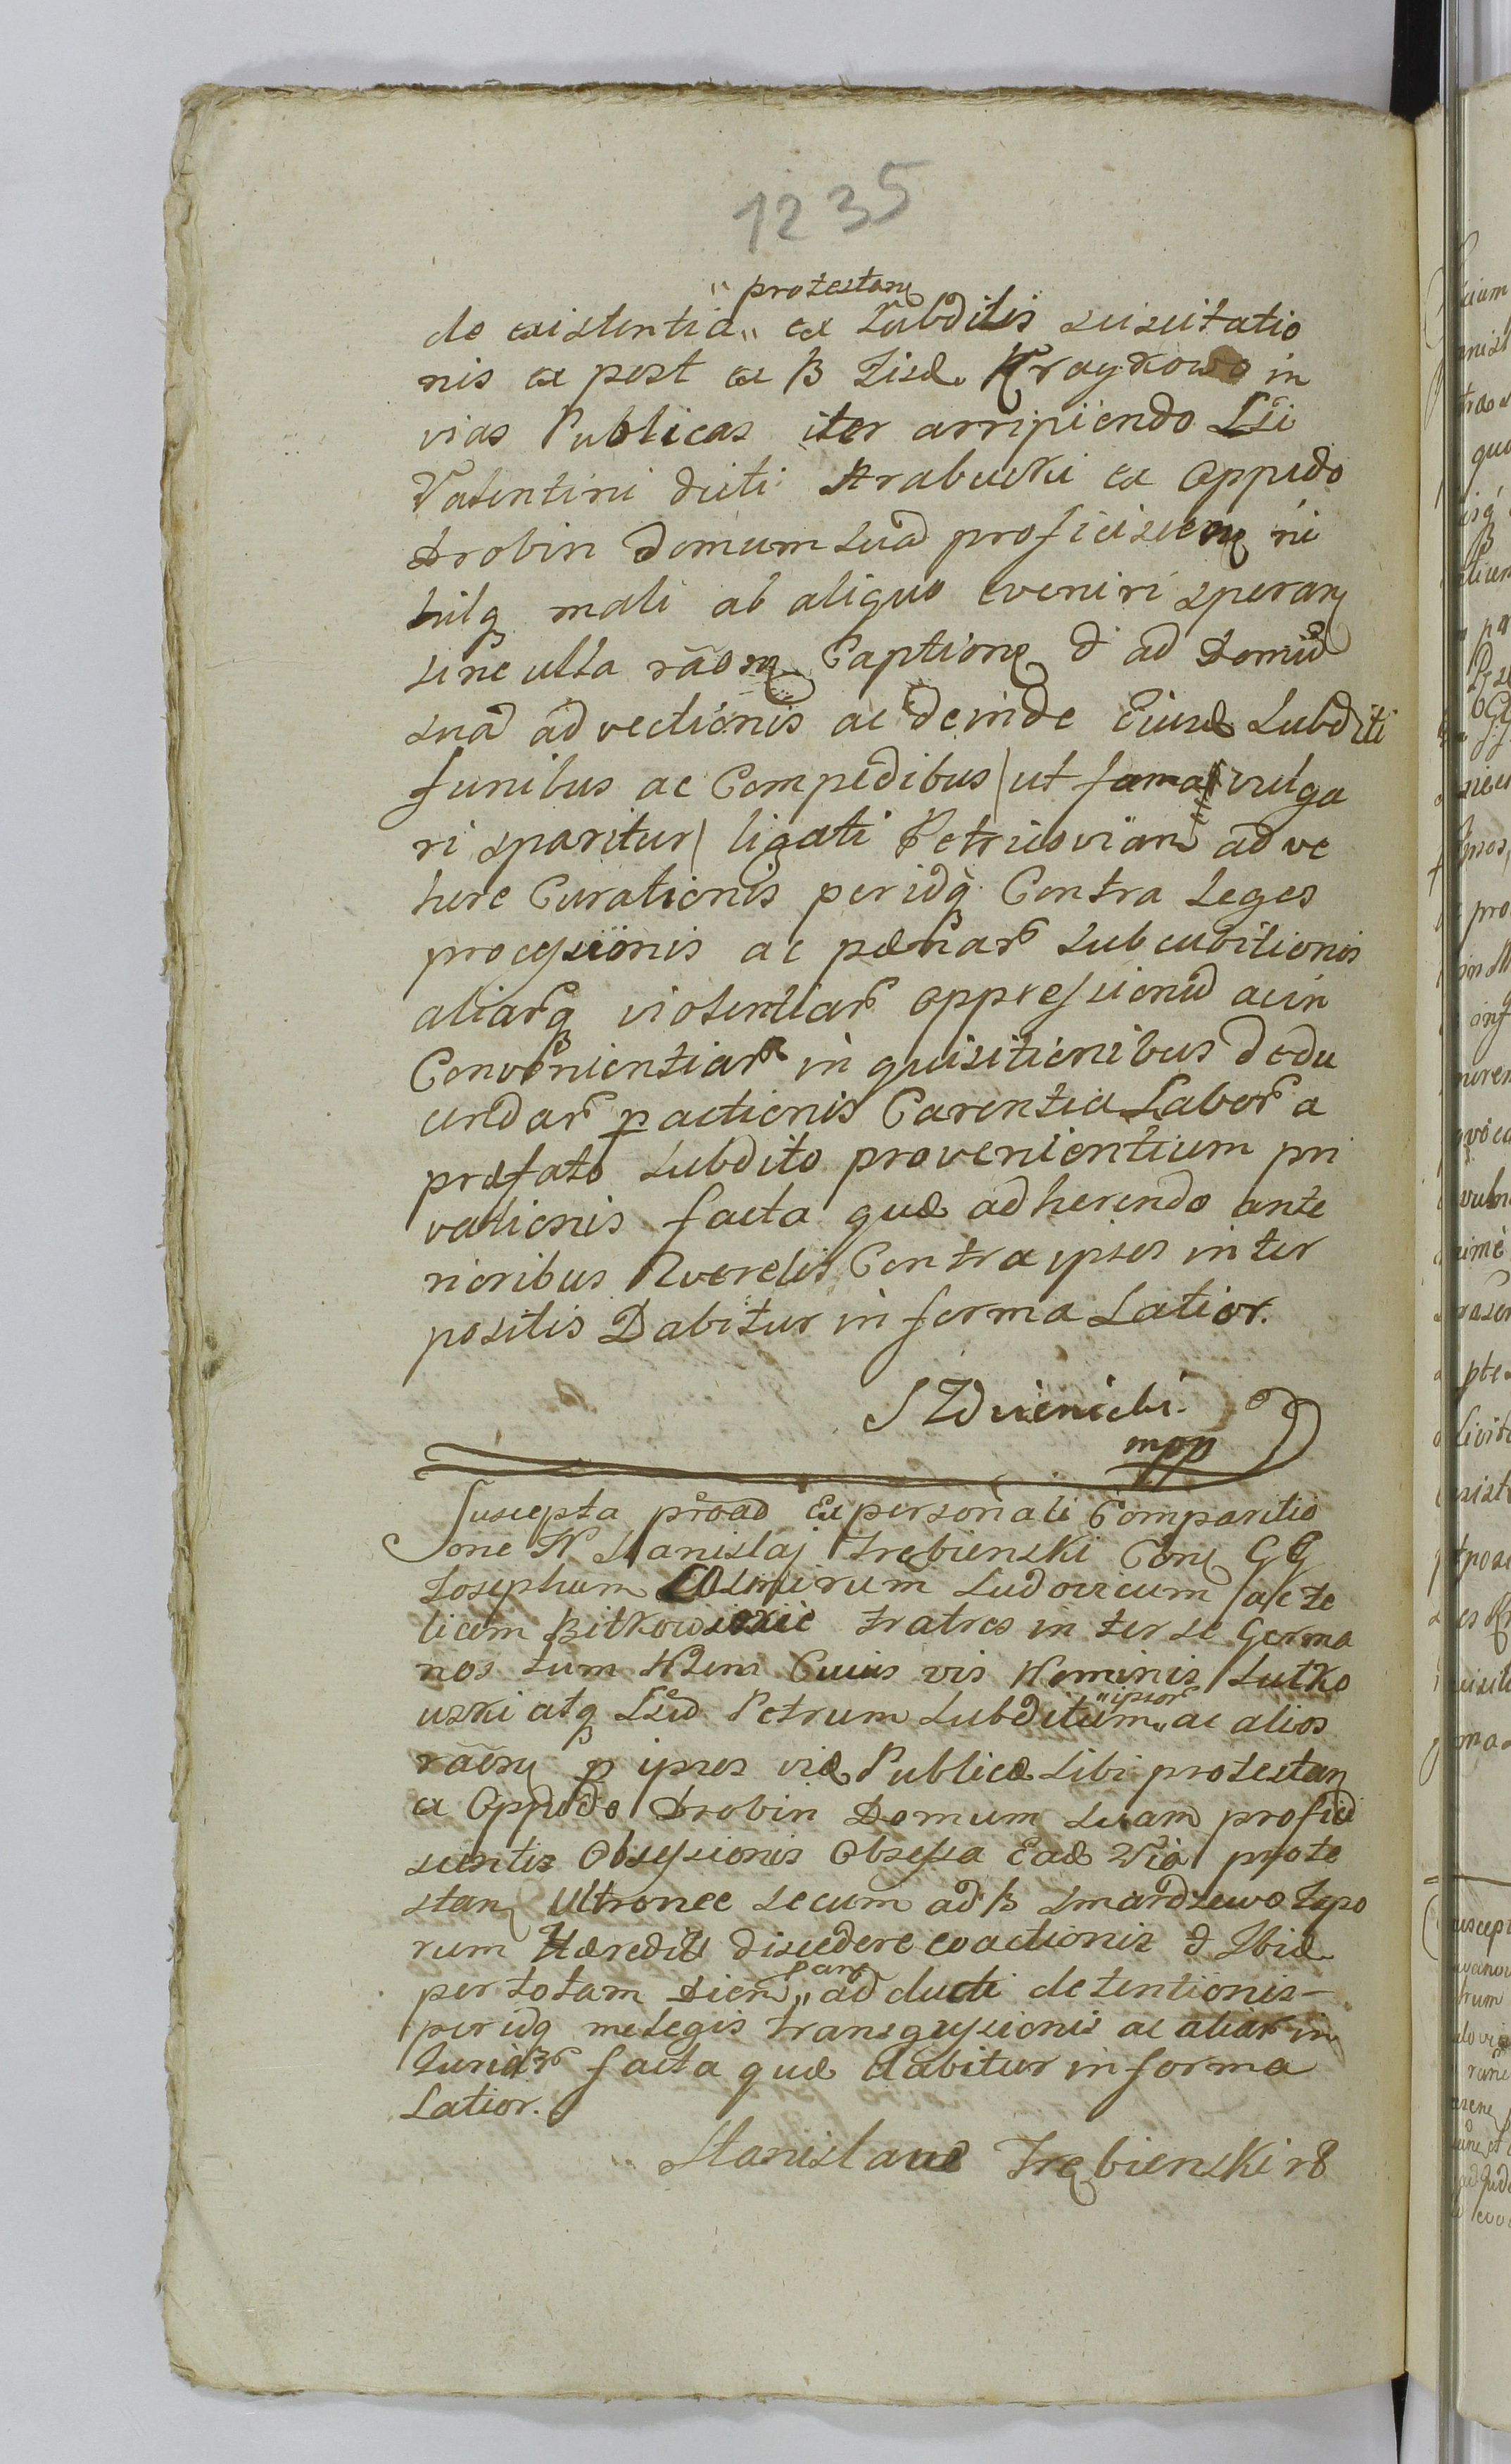 1235
protestan
de existentia ex Subditis suscitatio
nis ex post ex B Eisd. Kraykowo in
vias Publicas iter arripiendo Lsi
Valentini dicti Arabucki ex Oppido
Drobin Domum suad proficiscen ni
hilq mali ab aliquo eveniri speran
sine ulla raom Caption d ad Domud
suad advectionis ac deinde Eiusd Subditi
funibus ac Compedibus / ut fama vulga
ri sparitur / ligati Petricovian adve
here Curationis per idq Contra Leges
processionis ac pænar subcubitionis
aliarq violentiar oppressionud ac in
Convenientiar in quisitionibus dedu
cendar pactionis Carentia Labor a
præfato subdito provenientium pri
vationis facta quæ adherendo ante
rioribus Querelis Contra ipsos inter
positis Dabitur in forma Latior.
mpp
Suscepta proad Ex personali Comparitio
one N Stanislaj Trębienski Con GG
Josephum Casimirum Ludovicum ac Fe
licem fratres inter se Germa
nos tum Cuius vis Nominis Lutko
uski atq Lsd Petrum Subditum ipsor ac alios
raon p ipsos viæ Publicæ sibi protestan
ex Oppido Drobin Domum suam profici
scentis Obsessionis Obsessa Ead Via prote
stan Ultronee secum ad B Smardzewo Ipso
rum Hæredit discedere coactionis d Ibid
per totam Diem pan adducti detentionis
per idq me legis transgressionis ac aliar in
Juriar facta quæ dabitur in forma
Latior.
Stanislaus Trębienski